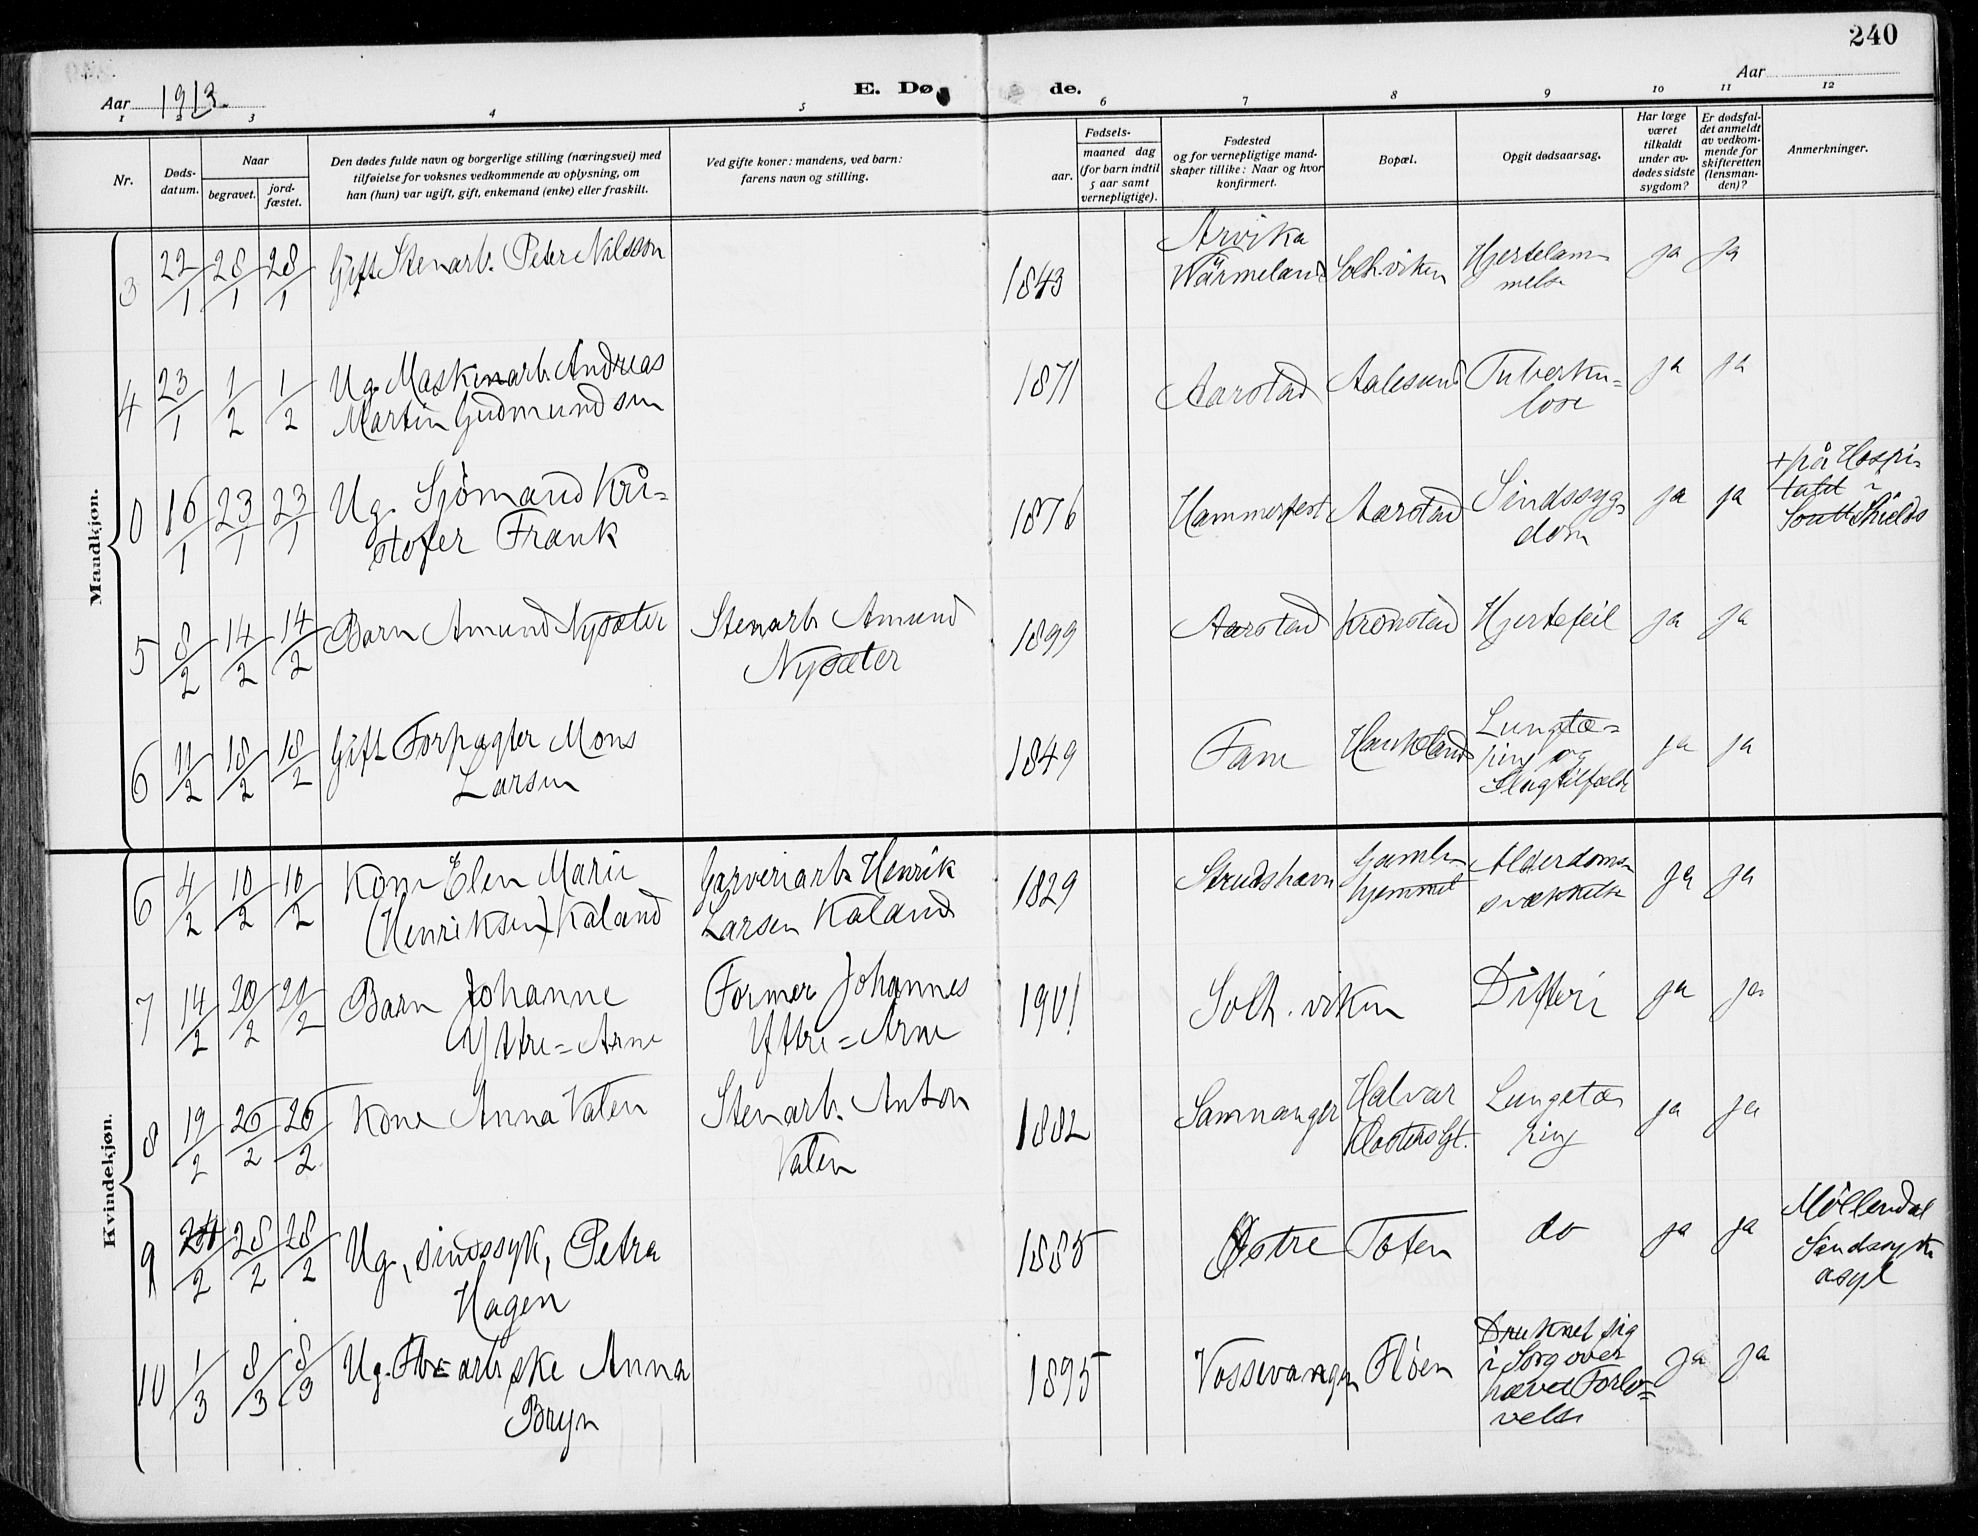 240
Aar 1913.
E. Dø de.
Aar
1 2 3 4 5 6 7 8 9 10 11 12
Nr.
Døds-
datum.
Naar
begravet.
jord-
fæstet.
Den dødes fulde navn og borgerlige stilling (næringsvei) med
tilføielse for voksnes vedkommende av oplysning, om
han (hun) var ugift, gift, enkemand (enke) eller fraskilt.
Ved gifte koner: mandens, ved barn:
farens navn og stilling.
Fødsels-
aar.
maaned dag
(for barn indtil
5 aar samt
vernepligtige).
Fødested
og for vernepligtige mand-
skaper tillike: Naar og hvor
konfirmert.
Bopæl.
Opgit dødsaarsag.
Har læge
været
tilkaldt
under av-
dødes sidste
sygdom?
Er dødsfal-
det anmeldt
av vedkom-
mende for
skifteretten
(lensman-
den)?
Anmerkninger.
Mandkjøn.
3 22/1 28/1 28/1 Gift Stenarb. Peter Nilsson 1843 Arvika
Wärmeland Solh.viken Hjertelam-
melse ja ja
4 23/1 1/2 1/2 Ug. Maskinarb. Andreas
Martin Gudmundsen 1871 Aarstad Aalesund Tuberku=
lose ja ja
0 16/1 23/1 23/1 Ug. Sjømand Kri=
stofer Frank 1876 Hammerfest Aarstad Sindssyg-
dom ja ja + på Hospi-
talet i
South Shields
5 8/2 14/2 14/2 Barn Amund Nysæter Stenarb. Amund
Nysæter 1899 Aarstad Kronstad Hjertefeil ja ja
6 11/2 18/2 18/2 Gift Forpagter Mons
Larsen 1849 Fane Haukeland Lungetæ=
ring og
Slagtilfælde ja ja
Kvindekjøn.
6 4/2 10/2 10/2 Kone Elen Marie
(Henriksen) Kaland Garveriarb. Henrik
Larsen Kaland 1829 Strudshavn Gamle-
hjemmet Alderdoms-
svækkelse ja ja
7 14/2 20/2 20/2 Barn Johanne
Yttre=Arne Former Johannes
Yttre=Arne 1901 Solh.viken Difteri ja ja
8 19/2 26/2 26/2 Kone Anna Valen Stenarb. Anton
Valen 1882 Samnanger Halvar
Klosters Gt. Lungetæ-
ring ja ja
9 24/2 28/2 28/2 Ug., sindssyk, Petra
Hagen 1885 Østre Toten do ja ja Møllendal
Sindssyke
asyl
10 1/3 8/3 8/3 Ug. arb.ske Anna
Bryn 1895 Vossevangen Fløen Druknet sig
i Sorg over
hævet Forlo=
velse ja ja